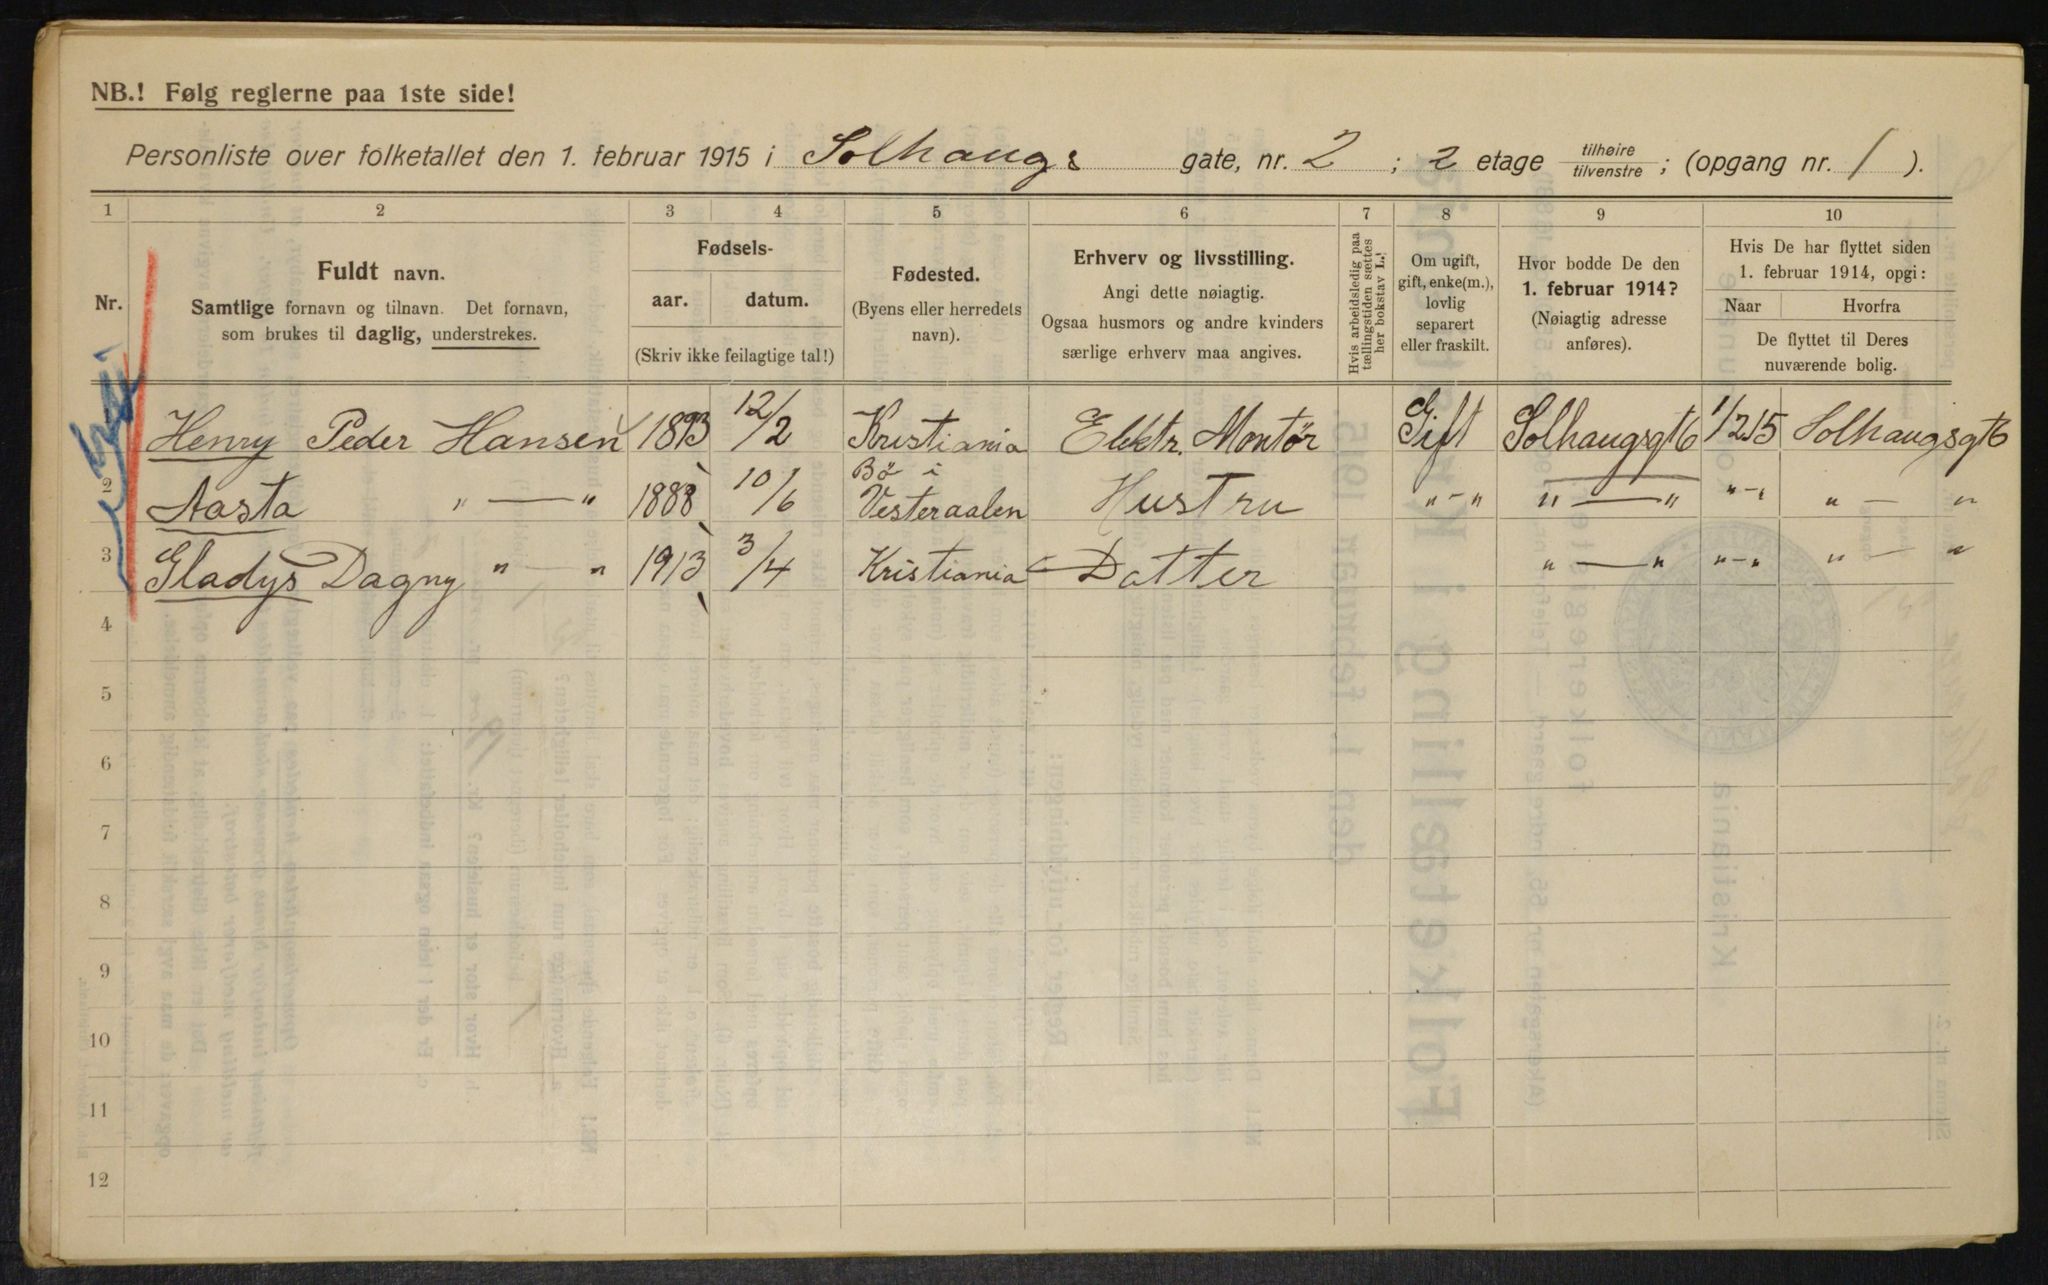 NB.! Følg reglerne paa 1ste side!
Personliste over folketallet den 1. februar 1915 i Solhaugs gate, nr. 2 ; 2 etage tilhøire/tilvenstre ; (opgang nr. 1 ).
1 2 3 4 5 6 7 8 9 10
Nr.
Fuldt navn.
Samtlige fornavn og tilnavn. Det fornavn,
som brukes til daglig, understrekes.
Fødsels-
aar. datum.
(Skriv ikke feilagtige tal!)
Fødested.
(Byens eller herredets
navn).
Erhverv og livsstilling.
Angi dette nøiagtig.
Ogsaa husmors og andre kvinders
særlige erhverv maa angives.
Hvis arbeidsledig paa
tællingstiden sættes
her bokstav L.!
Om ugift,
gift, enke(m.),
lovlig
separert
eller fraskilt.
Hvor bodde De den
1. februar 1914?
(Nøiagtig adresse
anføres).
Hvis De har flyttet siden
1. februar 1914, opgi:
Naar Hvorfra
De flyttet til Deres
nuværende bolig.
Henry Peder Hansen 1893 12/2 Kristiania Elektr. Montör Gift Solhaugsgt 6 1/2 15 Solhaugsgt 6
2 Aasta " — " 1888 10/6 Bö i Vesteraalen Hustru " - " " — " " - " " — "
3 Gladys Dagny " — " 1913 3/4 Kristiania Datter " — " " - " " — "
4
5
6
7
8
9
10
11
12